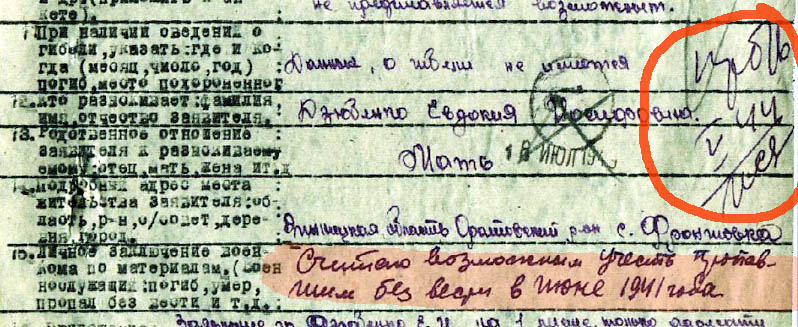 не представляется возможным.
кете).
При наличии сведений о
гибели, указать: где и ко-
гда (месяц, число, год) : Данных, о гибели не имеется
погиб, место похороненного
12. Кто разыскивает: фамилия,
имя, отчество заявителя. Дзюбенко Евдокия
13. Родственное отношение
заявителя к разыскиваемому
емому: отец, мать, жена ит.д Мать
18 ИЮЛ 19
14. Подробный адрес места :
жительства заявителя: об-
ласть, р-н, с/совет, дере-
вня, город. Винницкая область Оратовский р-он с. Фронтовка
15. Личное заключение воен-
кома по материалам. (Воен
нослужащий: погиб, умер,
пропал без вести и т.д.: Считаю возможным учесть пропав-
шим без вести в июне 1941 года.
прбв
V 44